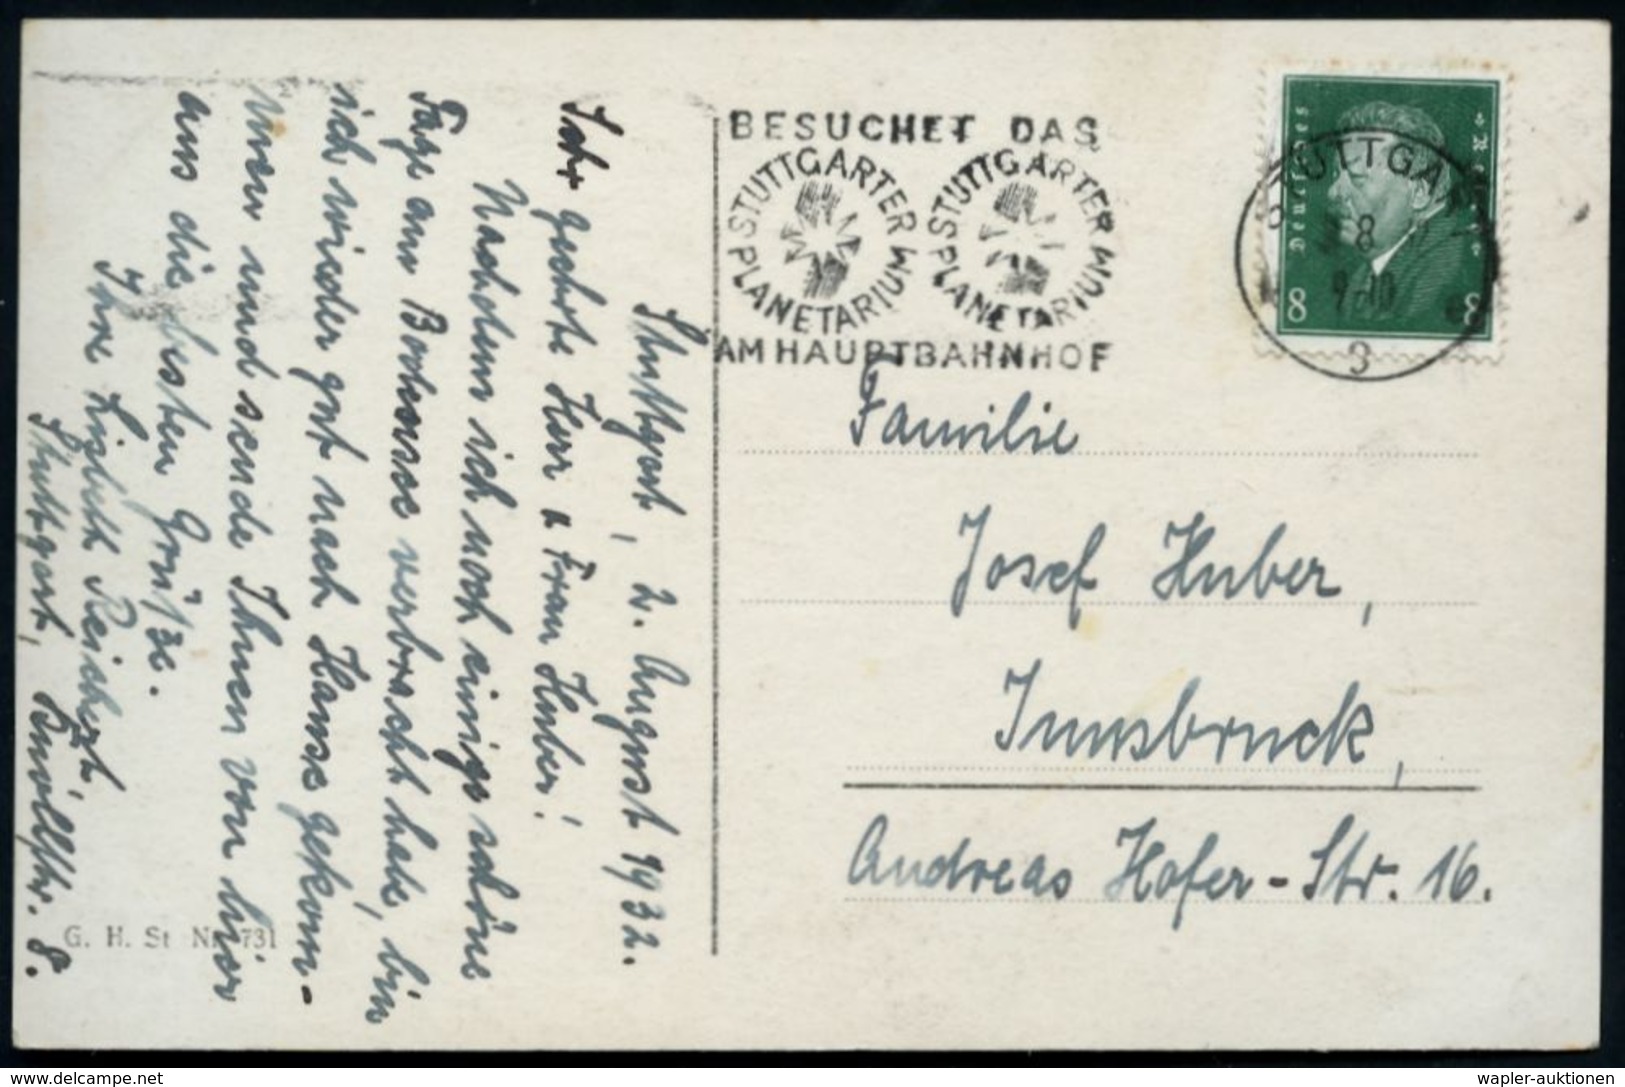 Stuttgart, 2. August 1932.
Sehr geehrte Herr u Frau Huber!
Nachdem ich noch einige schöne
Tage am Bodensee verbracht habe, bin
ich wieder gut nach Hause gekom-
men und sende Ihnen von hier
aus die besten Grüße.
Ihre Lisbeth Reichert,
Stuttgart,
8.
G. H. St Nr. 731
BESUCHET DAS
STUTTGARTER PLANETARIUM
STUTTGARTER PLANETARIUM
AM HAUPTBAHNHOF
Deutsches Reich
8 8
STUTTGART
8
9-10
9
Familie
Josef Huber,
Innsbruck,
Andreas Hofer-Str. 16.
www.delcampe.net
wapler-auktionen